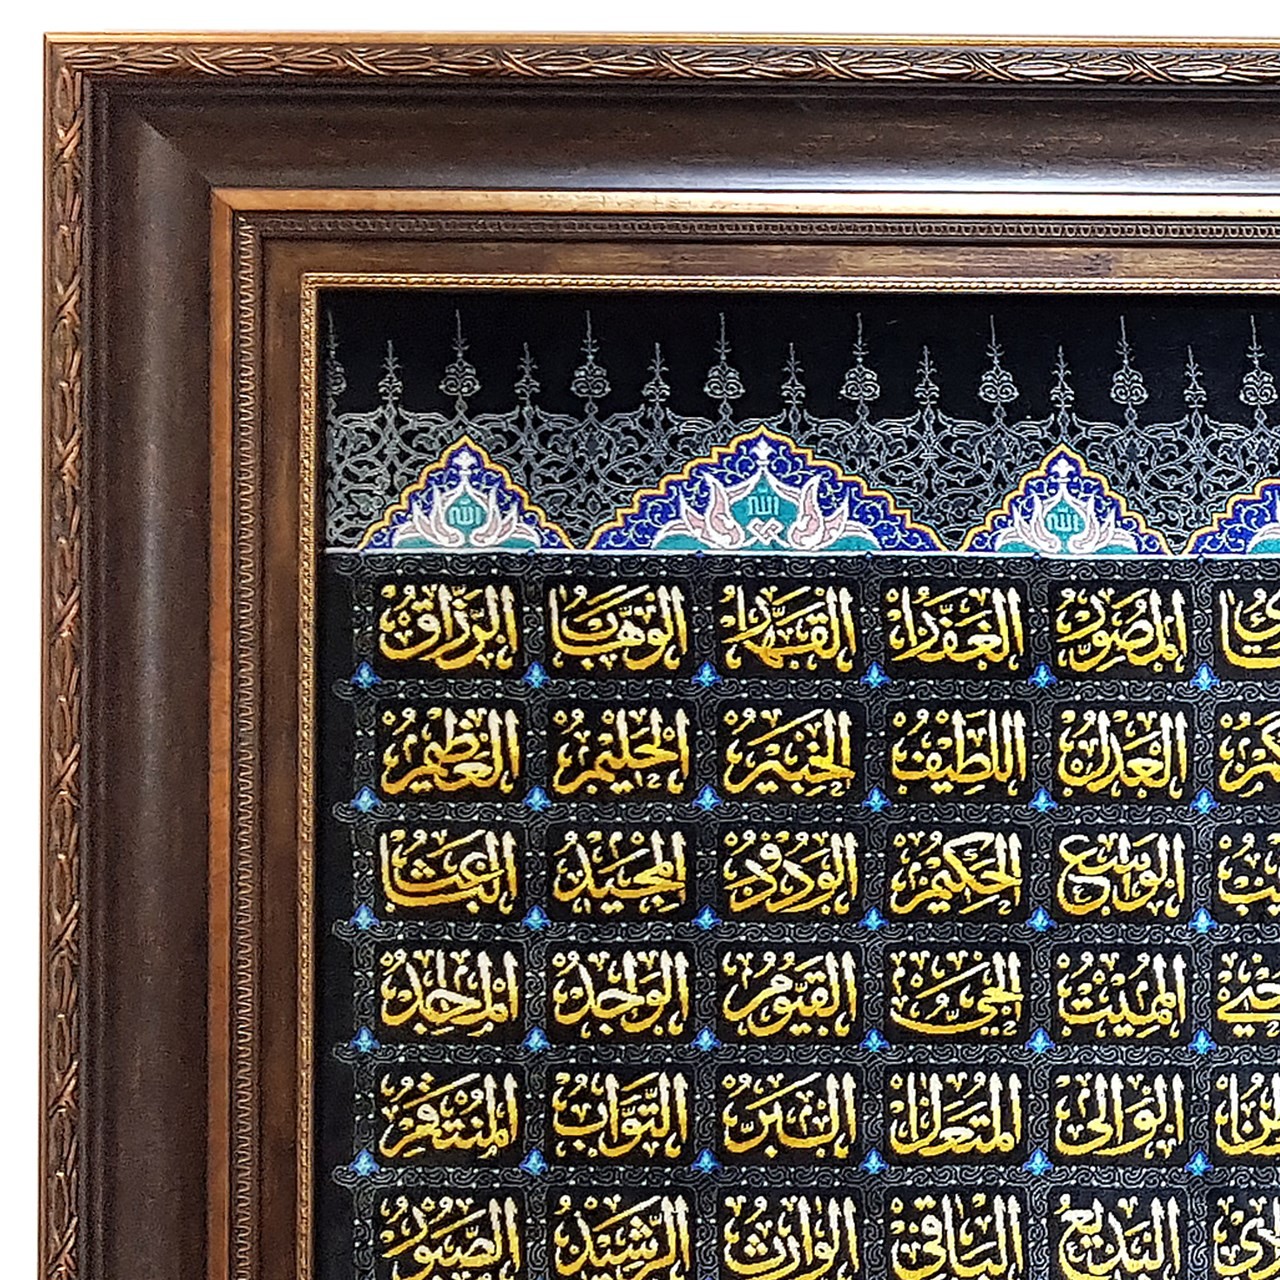 الله الله الله
المصور الغفار القهار الوهاب الرزاق
العدل اللطيف الخبير الحليم العظيم
الواسع الحكيم الودود المجيد الباعث
المميت الحي القيوم الواجد الماجد
الوالى المتعال البر التواب المنتقم
البديع الباقي الوارث الرشيد الصبور